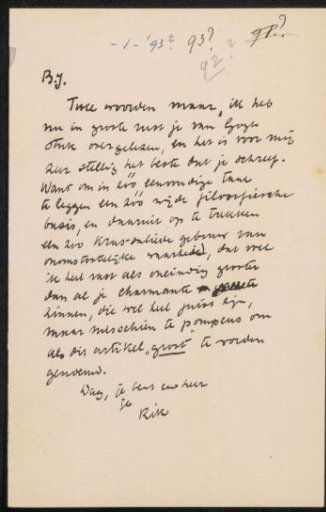 -1-'93? 93? 91?
92?
B.J.
Twee woorden maar, ik heb
nu in groote rust je van Gogh
stuk overgelezen, en het is voor mij
zeer stellig het beste dat je schreef.
Want om in zóó eenvoudige taal
te leggen een zóó wijde filosofische
basis, en daaruit op te trekken
een zoo gebouw van
waarheid, dat voel
ik heel vast als oneindig grooter
dan al je charmante
die wel heel juist zijn,
maar misschien te pompeus om
als dit artikel "groot" te worden
genoemd.
Dag, je
je
Rik